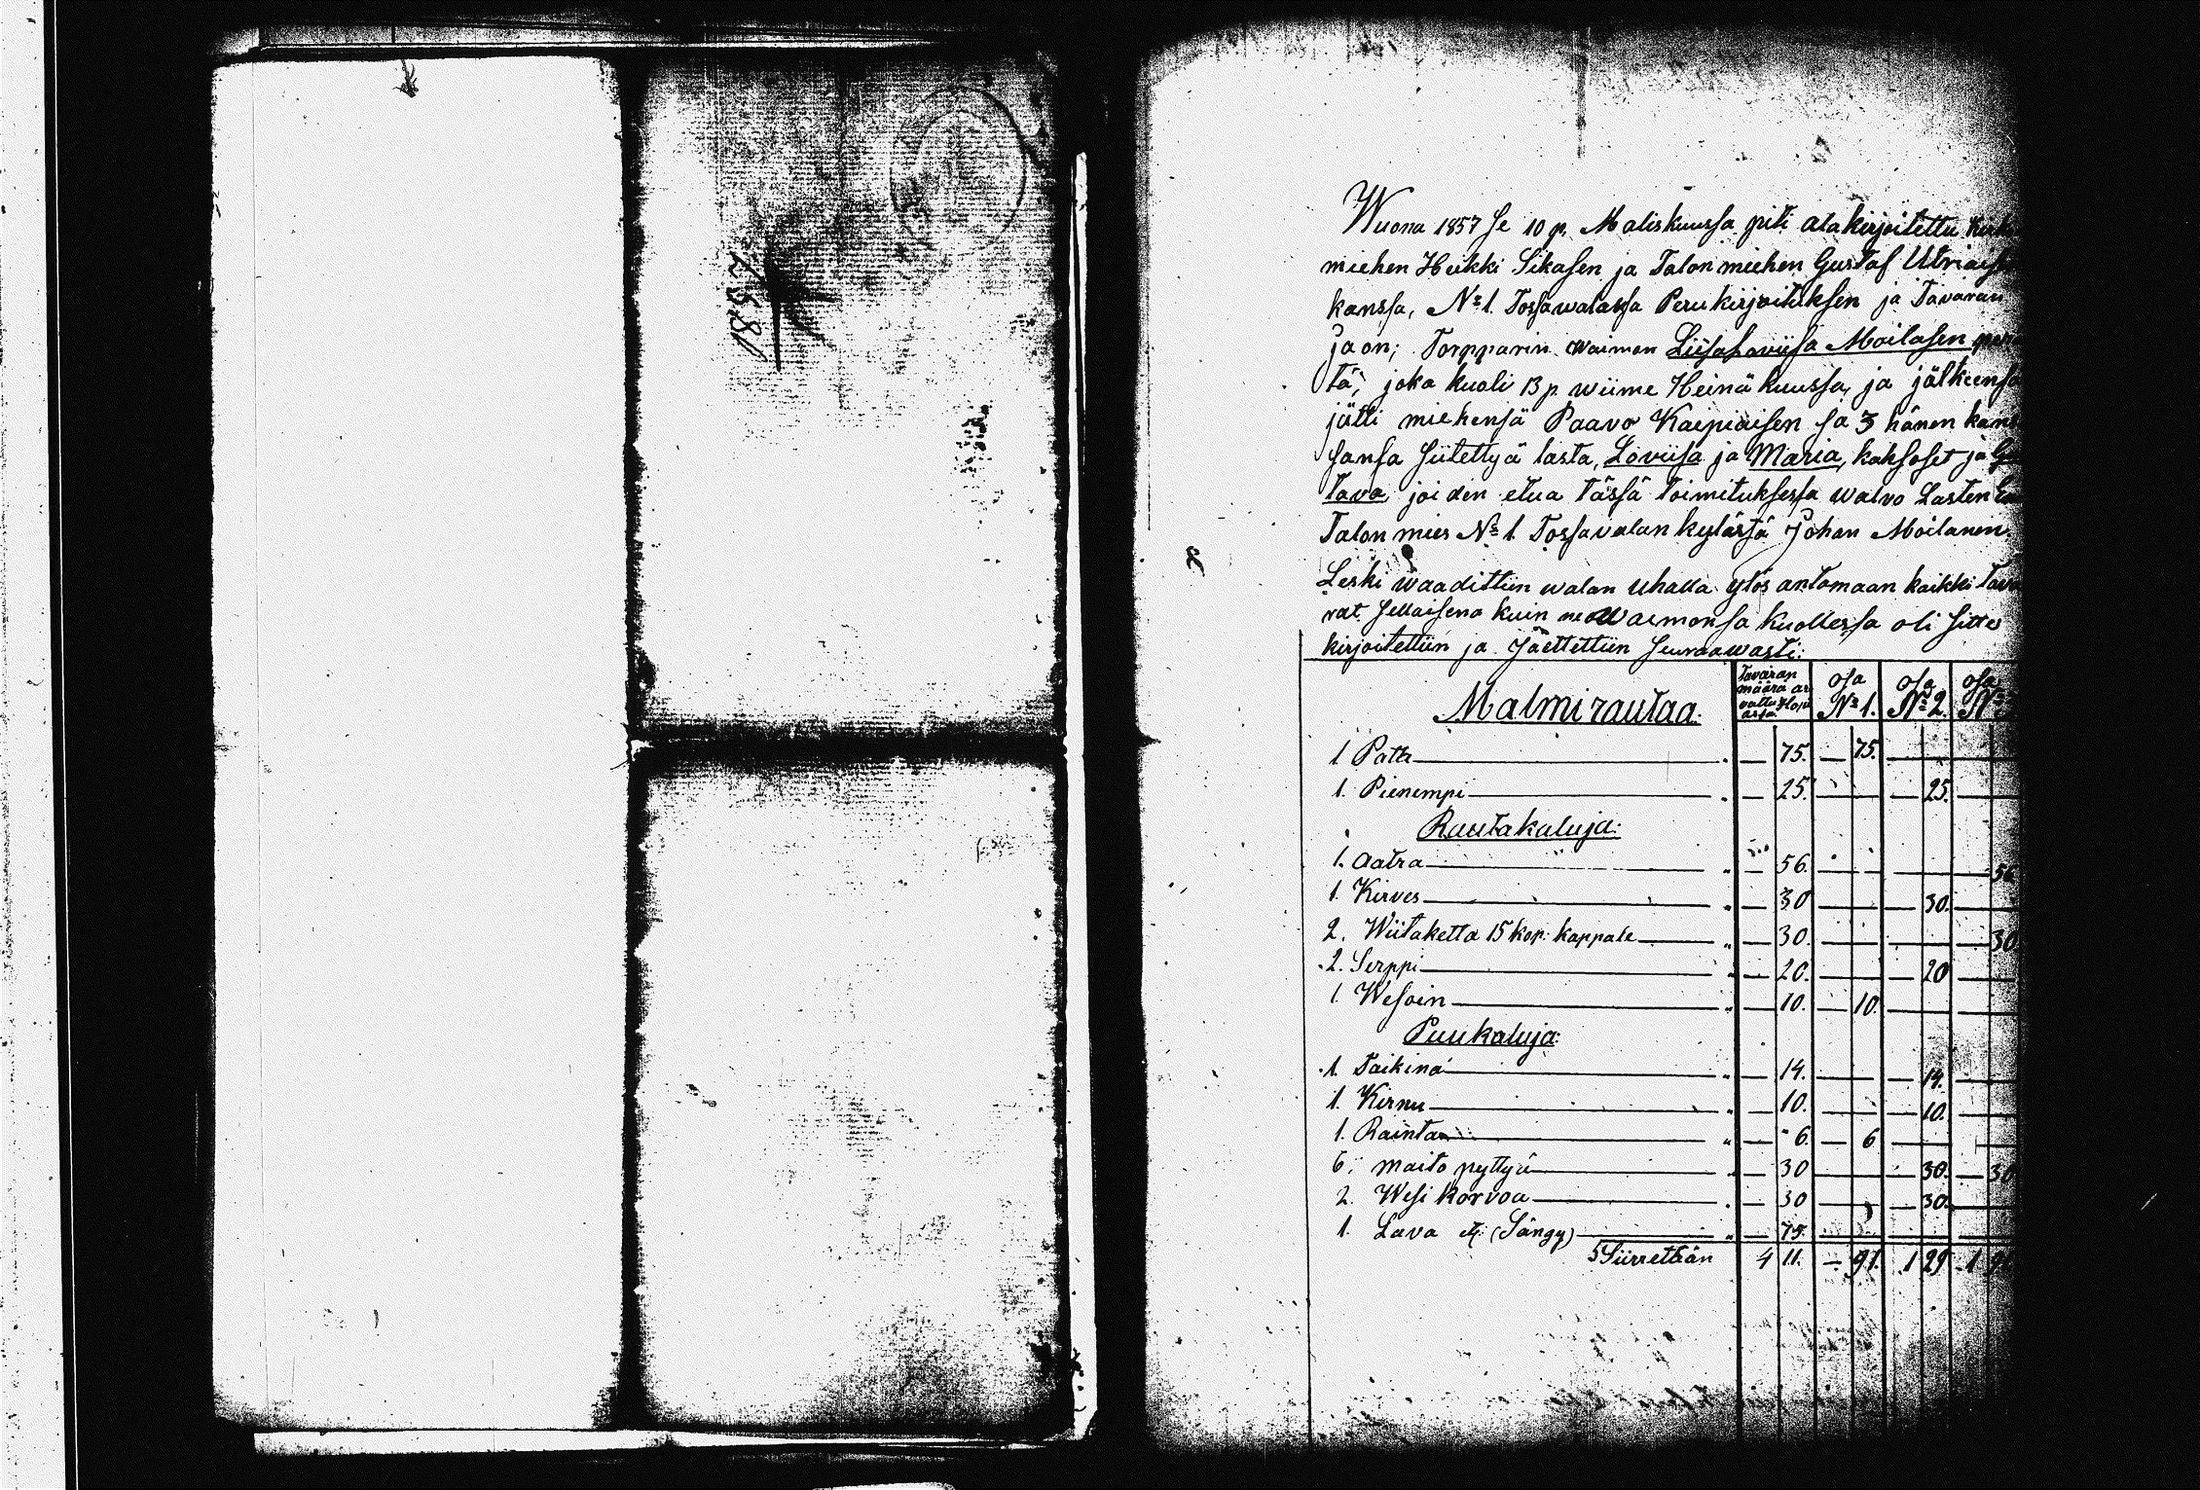 1857
8
Wuona 1857 se 10 p. Maliskuussa piti alakirjoitettu
miehen Heikki Sikasen ja Talon miehen Gustaf
kanssa, No 1. Tossawalassa Perukirjoituksen ja Tavaran
jaon; Torpparin waimon Liisa Loviisa Moilasen
tä, joka kuoli 13 p. wiime Heinäkuussa, ja jälkeensä
jätti miehensä Paavo Karpiaisen ja 3 hänen kans
sansa siitettyä lasta, Loviisa ja Maria, kahsoset ja
tava joiden etua tässä toimituksessa walvo Lasten
Talon mies No 1 Tossavalan kylässä Johan Moilanen
Leski waadittiin walan uhalla ylös antamaan kaikki
rat sellaisena kuin ne waimonsa kuollessa oli sitte
kirjoitettiin ja Jäettettiin seuraawasti:
Malmirautaa. Tavaran määrä osa No 1. osa No 2. osa No
1 Pata — 75. — 75.
1. Pienempi — 25. — 25.
Rautakaluja:
1. Aatra — 56. — 56
1. Kirves — 30 — 30.
2. Wiitaketta 15 kop. kappale — 30. — 30
2. Serppi — 20. — 20
1. Wesoin — 10. — 10.
Puukaluja:
1. Taikina — 14. — 14.
1. Kirnu — 10. — 10.
1. Rainta — 6. — 6
6. maito pyttyä — 30 — 30. — 30
2. Wesi korvoa — 30 — 30.
1. Lava (Sängy) — 75.
Siirretään 4 11. — 91. 1 29 1